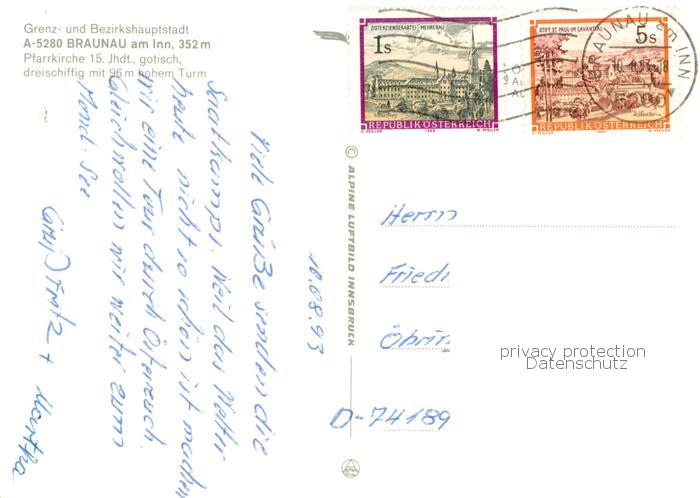 Grenz- und Bezirkshauptstadt
A-5280 BRAUNAU am Inn, 352 m
Pfarrkirche 15. Jhdt., gotisch,
dreischiffig mit 96 m hohem Turm
ZISTERZIENSERABTEI MEHRERAU
1s
REPUBLIK ÖSTERREICH
STIFT ST. PAUL IM LAVANTTAL
5s
REPUBLIK ÖSTERREICH
BRAUNAU am INN
Viele Grüße senden die
weil das Wetter
heute nicht so schön ist machen
wir eine Tour durch Österreich
Gleich wollen wir weiter zum
Mond See
Fritz + Martha
10.08.93
© ALPINE LUFTBILD INNSBRUCK
Herrn
Friedr
Öhrin
D-74189
privacy protection
Datenschutz